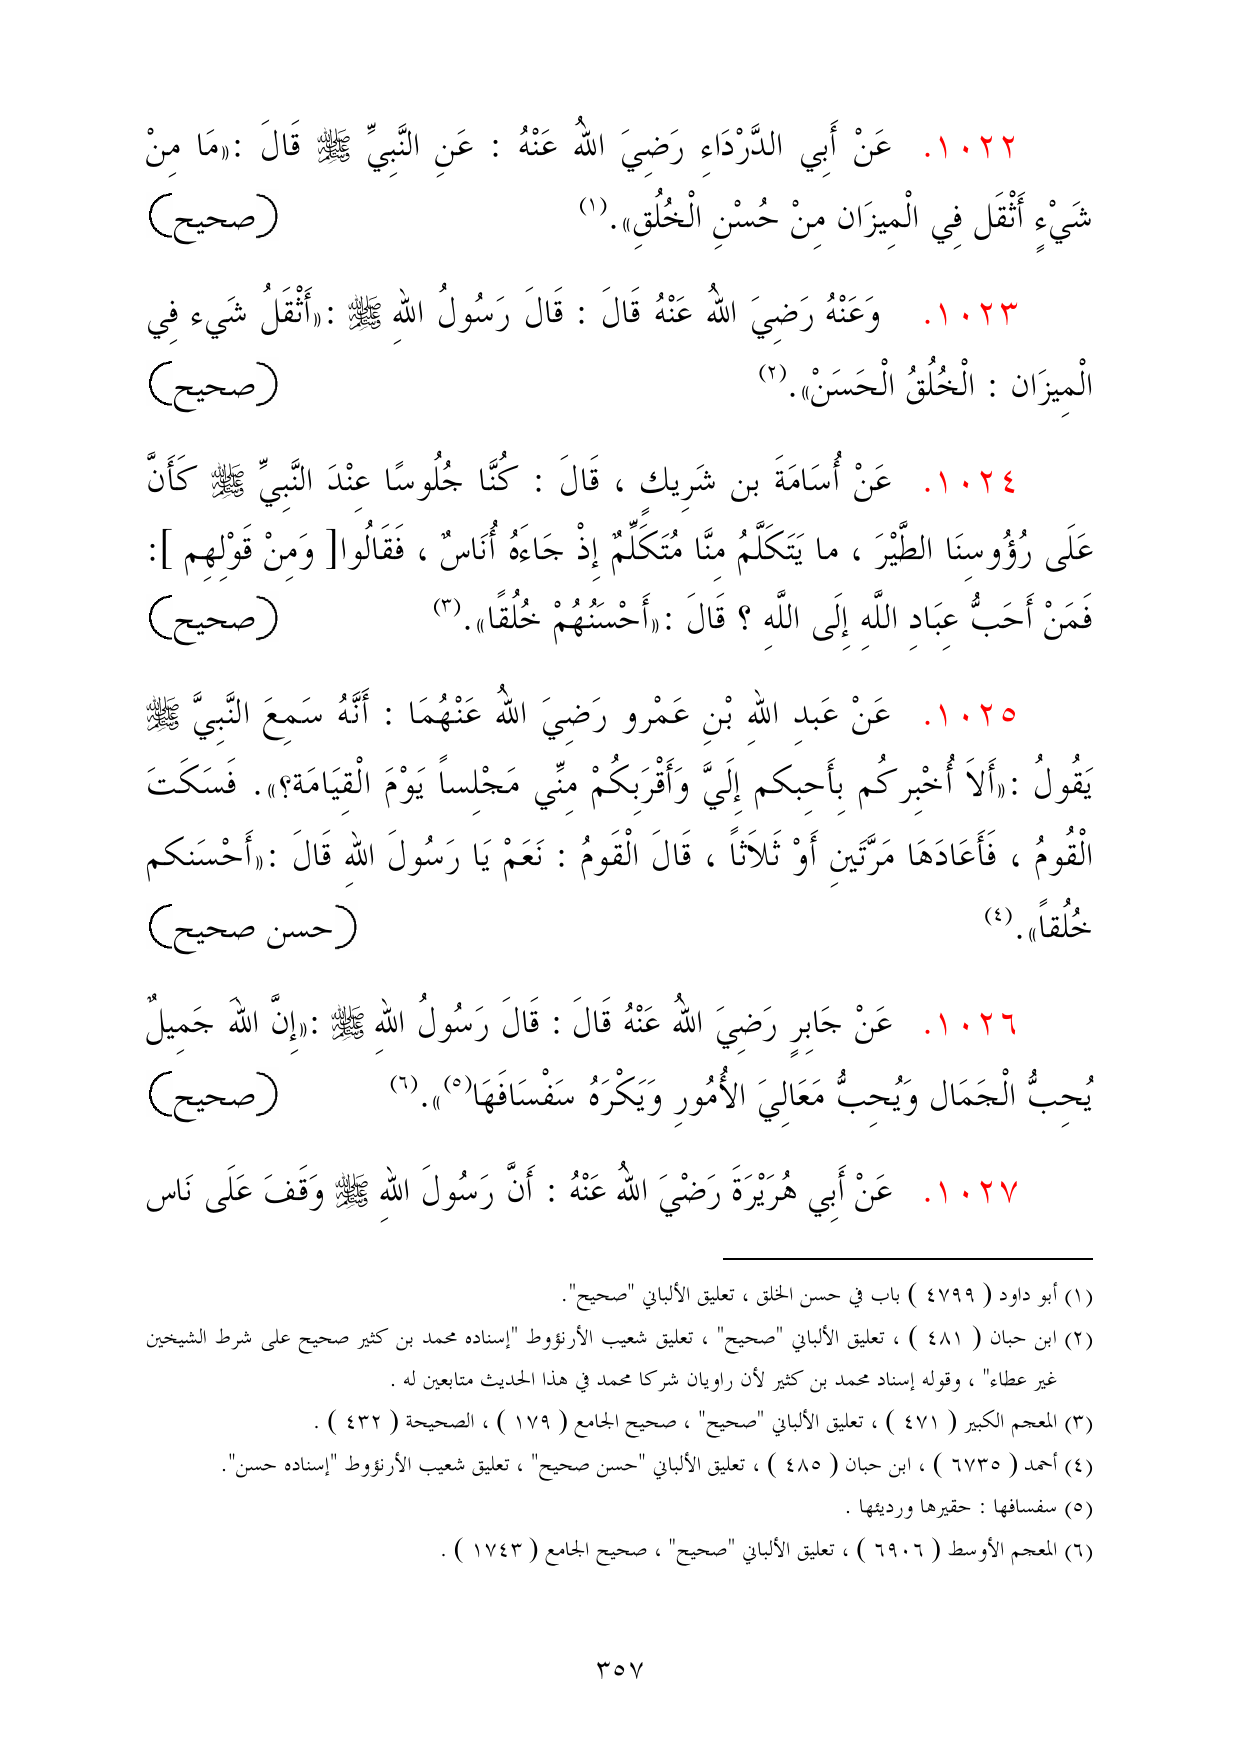 ١٠٢٢. عَنْ أَبِي الدَّرْدَاءِ رَضِيَ اللهُ عَنْهُ : عَنِ النَّبِيِّ ﷺ قَالَ :«مَا مِنْ
شَيْءٍ أَثْقَل فِي الْمِيزَان مِنْ حُسْنِ الْخُلُقِ».(١) (صحيح)
١٠٢٣. وَعَنْهُ رَضِيَ اللهُ عَنْهُ قَالَ : قَالَ رَسُولُ اللهِ ﷺ :«أَثْقَلُ شَيء فِي
الْمِيزَان : الْخُلُقُ الْحَسَنْ».(٢) (صحيح)
١٠٢٤. عَنْ أُسَامَةَ بن شَرِيكٍ ، قَالَ : كُنَّا جُلُوسًا عِنْدَ النَّبِيِّ ﷺ كَأَنَّ
عَلَى رُؤُوسِنَا الطَّيْرَ ، ما يَتَكَلَّمُ مِنَّا مُتَكَلِّمٌ إِذْ جَاءَهُ أُنَاسٌ ، فَقَالُوا[ وَمِنْ قَوْلِهِم ]:
فَمَنْ أَحَبُّ عِبَادِ اللَّهِ إِلَى اللَّهِ ؟ قَالَ :«أَحْسَنُهُمْ خُلُقًا».(٣) (صحيح)
١٠٢٥. عَنْ عَبدِ اللهِ بْنِ عَمْرو رَضِيَ اللهُ عَنْهُمَا : أَنَّهُ سَمِعَ النَّبِيَّ ﷺ
يَقُولُ :«أَلاَ أُخْبِركُم بِأَحِبكم إِلَيَّ وَأَقْرَبِكُمْ مِنِّي مَجْلِساً يَوْمَ الْقِيَامَة؟». فَسَكَتَ
الْقُومُ ، فَأَعَادَهَا مَرَّتَينِ أَوْ ثَلاَثاً ، قَالَ الْقَومُ : نَعَمْ يَا رَسُولَ اللهِ قَالَ :«أَحْسَنكم
خُلُقاً».(٤) (حسن صحيح)
١٠٢٦. عَنْ جَابِرٍ رَضِيَ اللهُ عَنْهُ قَالَ : قَالَ رَسُولُ اللهِ ﷺ :«إِنَّ اللهَ جَمِيلٌ
يُحِبُّ الْجَمَال وَيُحِبُّ مَعَالِيَ الأُمُورِ وَيَكْرَهُ سَفْسَافَهَا(٥)».(٦) (صحيح)
١٠٢٧. عَنْ أَبِي هُرَيْرَةَ رَضْيَ اللهُ عَنْهُ : أَنَّ رَسُولَ اللهِ ﷺ وَقَفَ عَلَى نَاس
(١) أبو داود ( ٤٧٩٩ ) باب في حسن الخلق ، تعليق الألباني "صحيح".
(٢) ابن حبان ( ٤٨١ ) ، تعليق الألباني "صحيح" ، تعليق شعيب الأرنؤوط "إسناده محمد بن كثير صحيح على شرط الشيخين
غير عطاء" ، وقوله إسناد محمد بن كثير لأن راويان شركا محمد في هذا الحديث متابعين له .
(٣) المعجم الكبير ( ٤٧١ ) ، تعليق الألباني "صحيح" ، صحيح الجامع ( ١٧٩ ) ، الصحيحة ( ٤٣٢ ) .
(٤) أحمد ( ٦٧٣٥ ) ، ابن حبان ( ٤٨٥ ) ، تعليق الألباني "حسن صحيح" ، تعليق شعيب الأرنؤوط "إسناده حسن".
(٥) سفسافها : حقيرها ورديئها .
(٦) المعجم الأوسط ( ٦٩٠٦ ) ، تعليق الألباني "صحيح" ، صحيح الجامع ( ١٧٤٣ ) .
٣٥٧